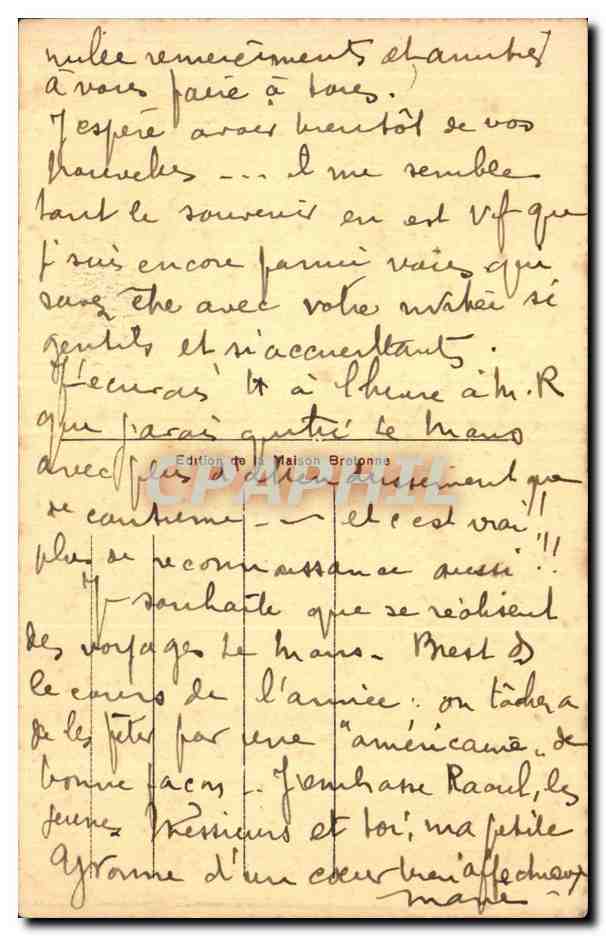 mille remerciments et amitiés
à vous faire à tous.
J'espère avoir bientôt de vos
nouvelles --- il me semble
tant le souvenir en est vif que
j'suis encore parmi vous que
être avec votre si
gentils et si accueillants.
J'écrivais à l'heure à M.R
que j'avais quitté Le Mans
avec plus d'attendrissement que
Edition de la Maison Bretonne
CPAPHIL
de coutume -- et c'est vrai!!
plus de reconnaissance aussi!!!
Je souhaite que se réalisent
des voyages Le Mans - Brest ds
le cours de l'année : on tâchera
de les fêter par une "américaine" de
bonne façon -- J'embrasse Raoul, les
jeunes Messieurs et toi, ma petite
Yvonne d'un cœur bien affectueux
Marie